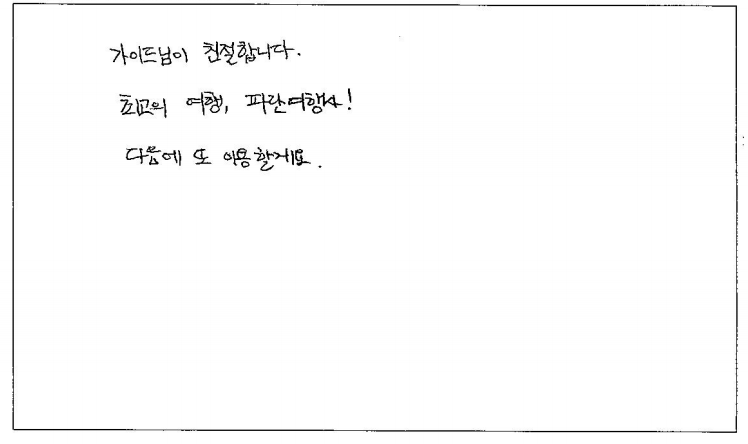 가이드님이 친절합니다.
최고의 여행, 파란여행사!
다음에 또 이용할게요.